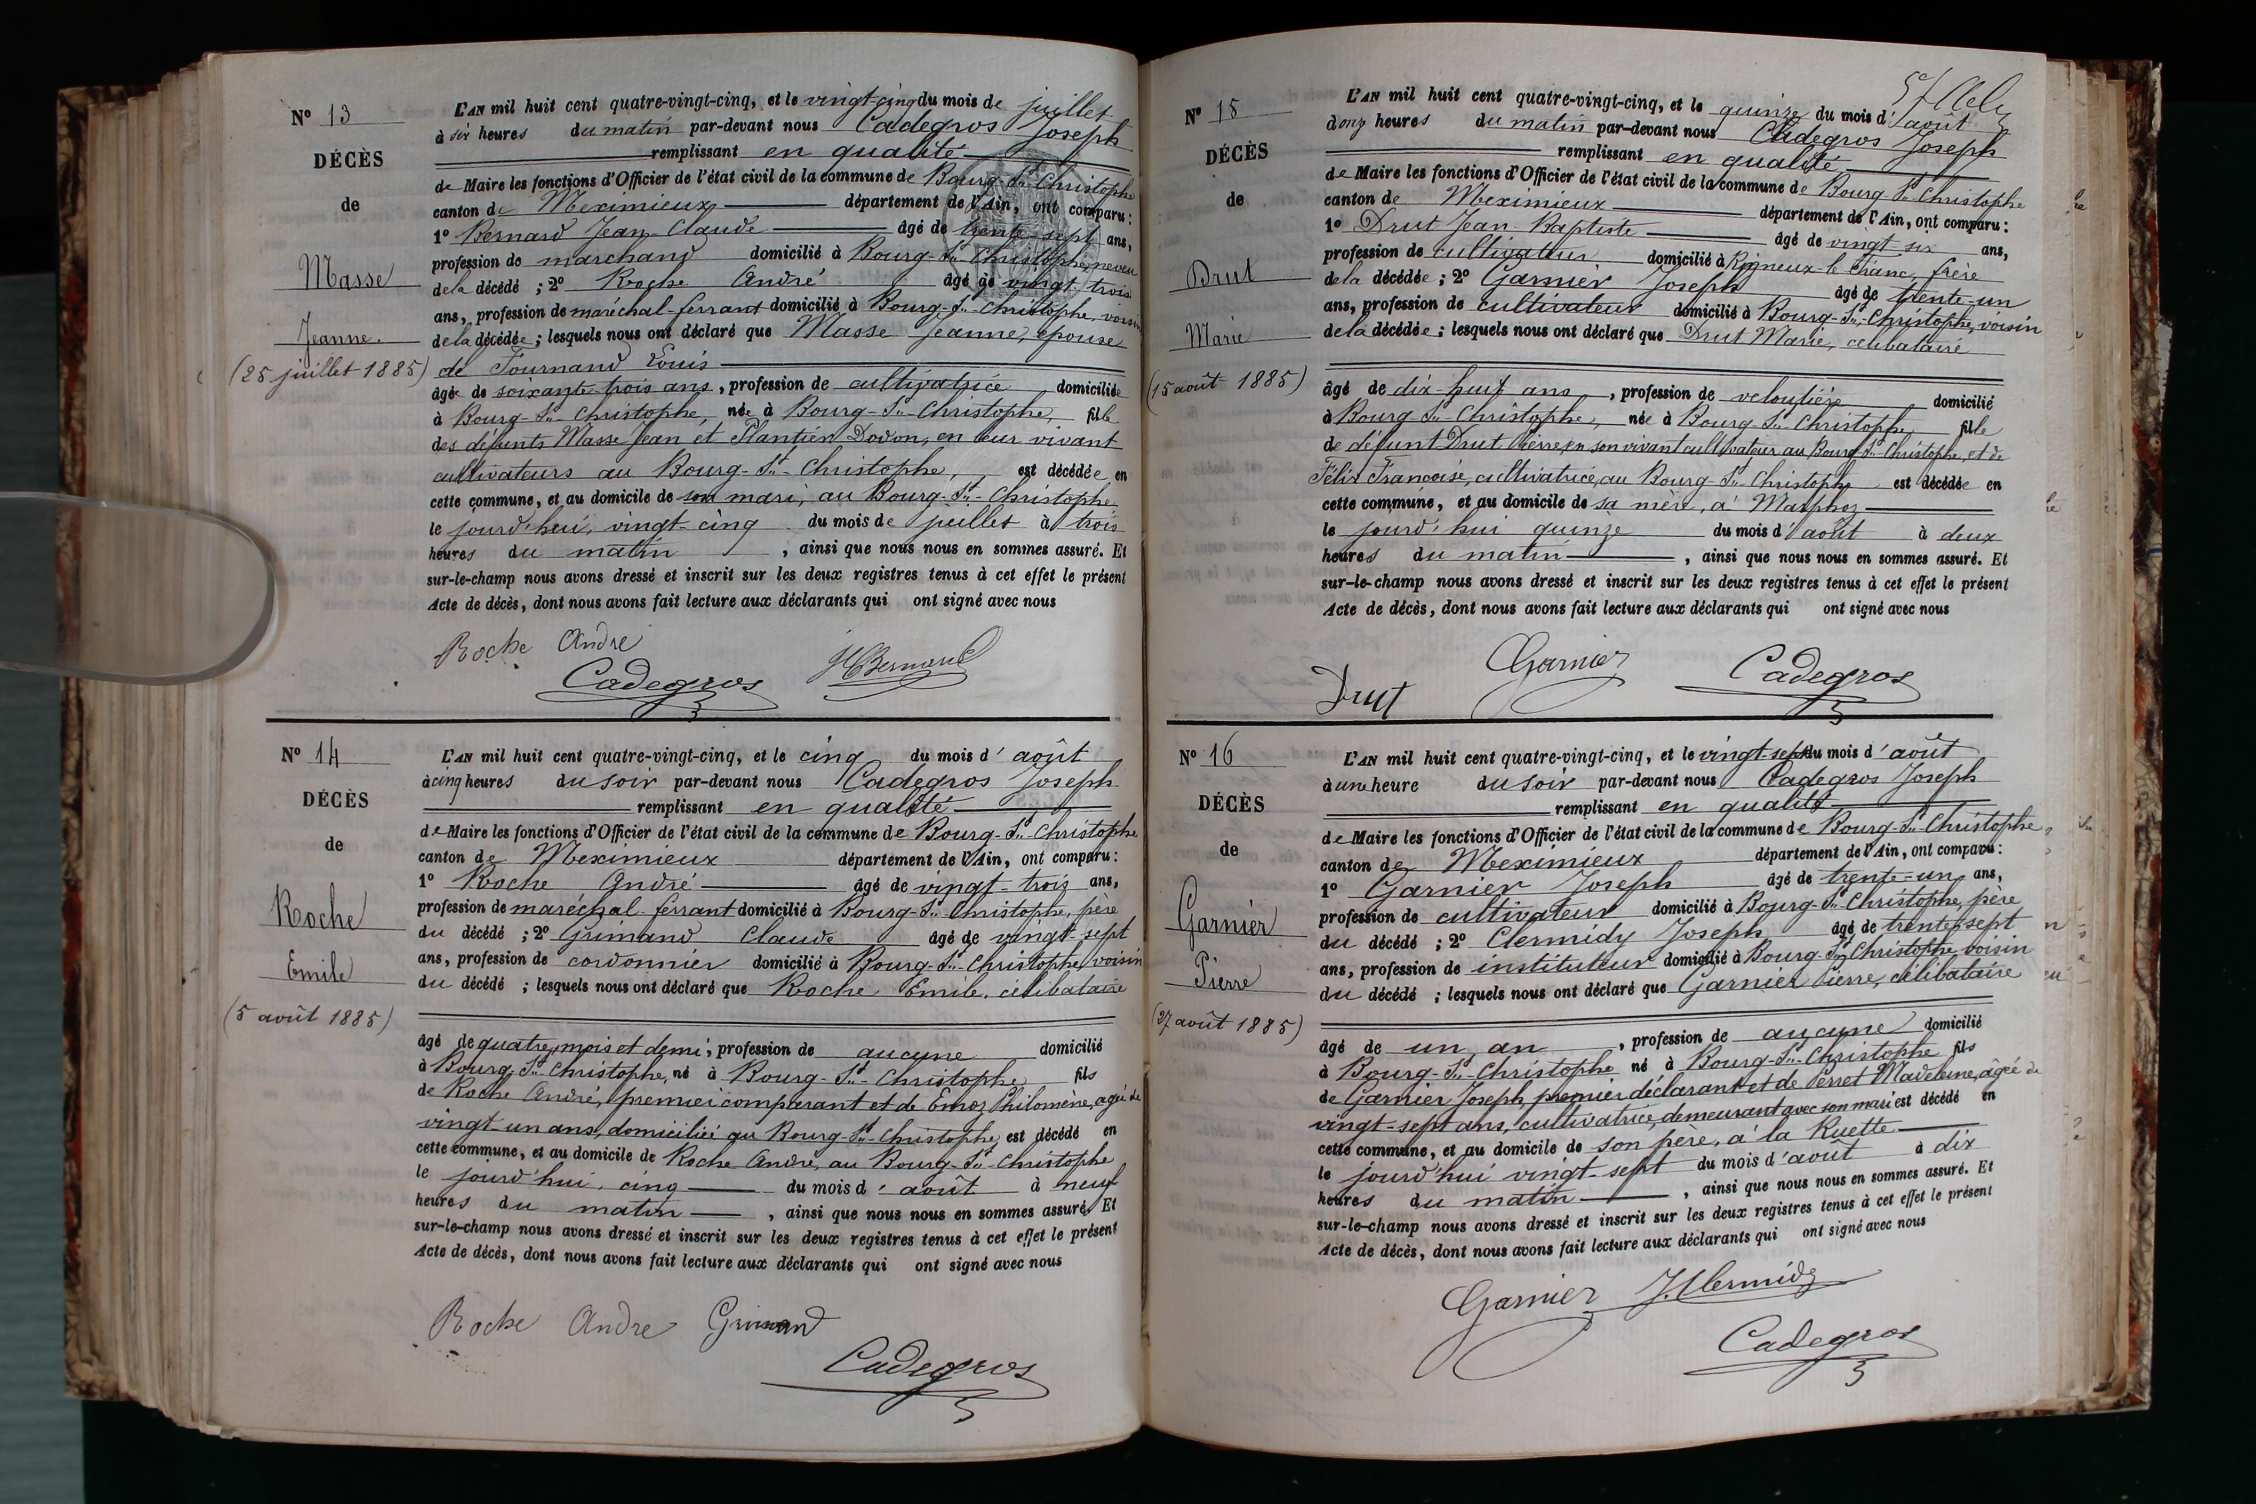 N° 13
DÉCÈS
de
Masse
Jeanne.
(25 juillet 1885)
L'AN mil huit cent quatre-vingt-cinq, et le vingt-cinq du mois de juillet
à six heures du matin par-devant nous Cadegros Joseph
remplissant en qualité
de Maire les fonctions d'Officier de l'état civil de la commune de Bourg-St-Christophe
canton de Meximieux département de l'Ain, ont comparu :
1° Bernard Jean-Claude âgé de trente-sept ans,
profession de marchand domicilié à Bourg-St-Christophe, neveu
de la décédé ; 2° Roche André âgé de vingt-trois
ans, profession de maréchal-ferrant domicilié à Bourg-St-Christophe, voisin
de la décédée ; lesquels nous ont déclaré que Masse Jeanne, épouse
de Tournand Louis
âgée de soixante-trois ans, profession de cultivatrice domiciliée
à Bourg-St-Christophe, née à Bourg-St-Christophe, fille
des défunts Masse Jean et Plantier Dodon, en leur vivant
cultivateurs au Bourg-St-Christophe, est décédée en
cette commune, et au domicile de son mari, au Bourg-St-Christophe
le jourd'hui, vingt-cinq du mois de juillet à trois
heures du matin, ainsi que nous nous en sommes assuré. Et
sur-le-champ nous avons dressé et inscrit sur les deux registres tenus à cet effet le présent
Acte de décès, dont nous avons fait lecture aux déclarants qui ont signé avec nous
Roche André
Cadegros
Bernard
N° 14
DÉCÈS
de
Roche
Emile
(5 août 1885)
L'AN mil huit cent quatre-vingt-cinq, et le cinq du mois d'août
à cinq heures du soir par-devant nous Cadegros Joseph
remplissant en qualité
de Maire les fonctions d'Officier de l'état civil de la commune de Bourg-St-Christophe
canton de Meximieux département de l'Ain, ont comparu :
1° Roche André âgé de vingt-trois ans,
profession de maréchal-ferrant domicilié à Bourg-St-Christophe, père
du décédé ; 2° Grimand Claude âgé de vingt-sept
ans, profession de cordonnier domicilié à Bourg-St-Christophe, voisin
du décédé ; lesquels nous ont déclaré que Roche Emile, célibataire
âgé de quatre mois et demi, profession de aucune domicilié
à Bourg-St-Christophe, né à Bourg-St-Christophe, fils
de Roche André, premier comparant et de Emoz Philomène, agée de
vingt-un ans, domiciliée au Bourg-St-Christophe, est décédé en
cette commune, et au domicile de Roche André, au Bourg-St-Christophe
le jourd'hui, cinq du mois d'août à neuf
heures du matin, ainsi que nous nous en sommes assuré. Et
sur-le-champ nous avons dressé et inscrit sur les deux registres tenus à cet effet le présent
Acte de décès, dont nous avons fait lecture aux déclarants qui ont signé avec nous
Roche André Grimand
Cadegros
N° 15
DÉCÈS
de
Drut
Marie
(15 août 1885)
L'AN mil huit cent quatre-vingt-cinq, et le quinze du mois d'août
à onze heures du matin par-devant nous Cadegros Joseph
remplissant en qualité
de Maire les fonctions d'Officier de l'état civil de la commune de Bourg-St-Christophe
canton de Meximieux département de l'Ain, ont comparu :
1° Drut Jean-Baptiste âgé de vingt-six ans,
profession de cultivateur domicilié à Rigneux-le-Franc, frère
de la décédée ; 2° Garnier Joseph âgé de trente-un
ans, profession de cultivateur domicilié à Bourg-St-Christophe, voisin
de la décédée ; lesquels nous ont déclaré que Drut Marie, célibataire
âgé de dix-huit ans, profession de veloutière domicilié
à Bourg-St-Christophe, née à Bourg-St-Christophe, fille
de défunt Drut Pierre, en son vivant cultivateur au Bourg-St-Christophe, et de
Félix Françoise, cultivatrice, au Bourg-St-Christophe est décédée en
cette commune, et au domicile de sa mère, à Marphoz
le jourd'hui quinze du mois d'août à deux
heures du matin, ainsi que nous nous en sommes assuré. Et
sur-le-champ nous avons dressé et inscrit sur les deux registres tenus à cet effet le présent
Acte de décès, dont nous avons fait lecture aux déclarants qui ont signé avec nous
Drut
Garnier
Cadegros
N° 16
DÉCÈS
de
Garnier
Pierre
(27 août 1885)
L'AN mil huit cent quatre-vingt-cinq, et le vingt-sept du mois d'août
à une heure du soir par-devant nous Cadegros Joseph
remplissant en qualité
de Maire les fonctions d'Officier de l'état civil de la commune de Bourg-St-Christophe
canton de Meximieux département de l'Ain, ont comparu :
1° Garnier Joseph âgé de trente-un ans,
profession de cultivateur domicilié à Bourg-St-Christophe, père
du décédé ; 2° Clermidy Joseph âgé de trente-sept
ans, profession de instituteur domicilié à Bourg-St-Christophe voisin
du décédé ; lesquels nous ont déclaré que Garnier Pierre, célibataire
âgé de un an, profession de aucune domicilié
à Bourg-St-Christophe né à Bourg-St-Christophe fils
de Garnier Joseph, premier déclarant et de Perret Madeleine, âgée de
vingt-sept ans, cultivatrice, demeurant avec son mari est décédé en
cette commune, et au domicile de son père, à la Ruette
le jourd'hui vingt-sept du mois d'août à dix
heures du matin, ainsi que nous nous en sommes assuré. Et
sur-le-champ nous avons dressé et inscrit sur les deux registres tenus à cet effet le présent
Acte de décès, dont nous avons fait lecture aux déclarants qui ont signé avec nous
Garnier J. Clermidy
Cadegros